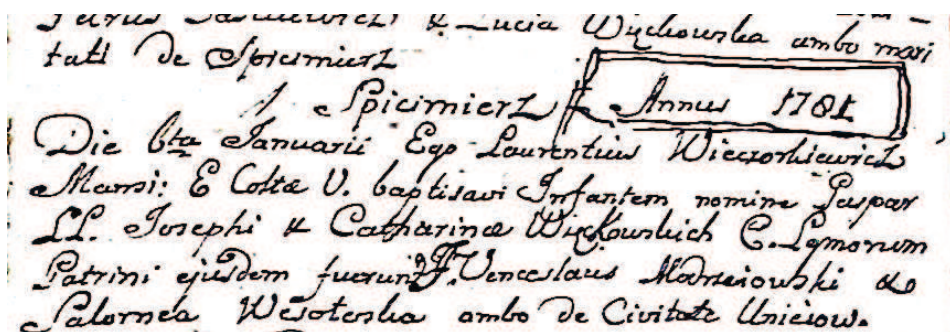 Petrus Jasulewiczi & Lucia Więckowska ambo mari
tati de Spicimierz
Spicimierz Annus 1781
Die 6ta Januarii Ego Laurentius Wieczorkiewicz
Mansi: E Coltæ U. baptisavi Infantem nomine Gaspar
LL. Josephi & Catharinæ Więckowskich C. Lgmorum
Patrini ejusdem fuerunt F. Venceslaus &
Salomea ambo de Civitate Uniejow.